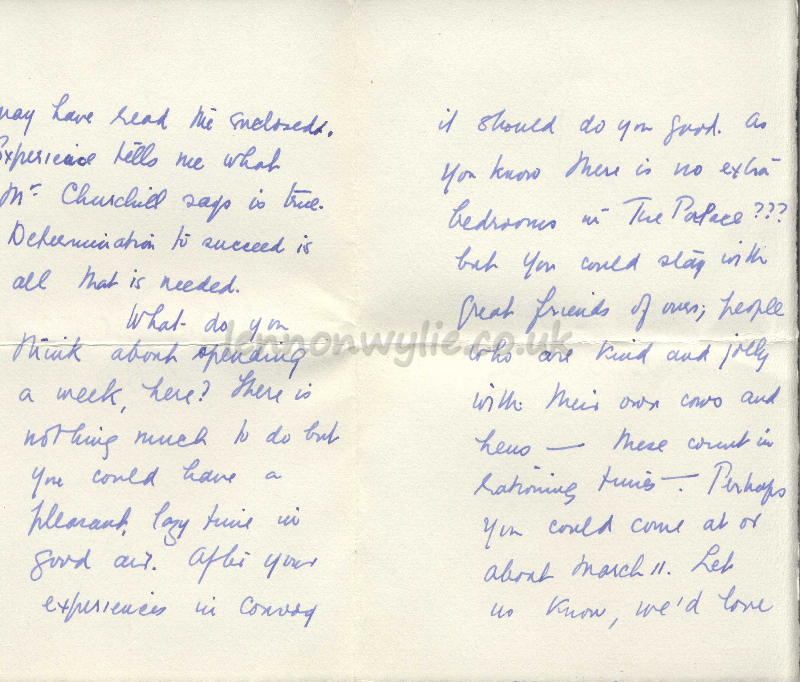 may have read the enclosed.
Experience tells me what
Mr. Churchill says is true.
Determination to succeed is
all that is needed.
What do you
think about spending
a week, here? There is
nothing much to do but
you could have a
pleasant, lazy time in
good air. After your
experiences in Convoy
it should do you good. As
you know there is no extra
bedrooms in The Palace???
but you could stay with
great friends of ours; people
who are kind and jolly
with their own cows and
hens — these count in
rationing times —. Perhaps
you could come at or
about March 11. Let
us know, we'd love
lennonwylie.co.uk